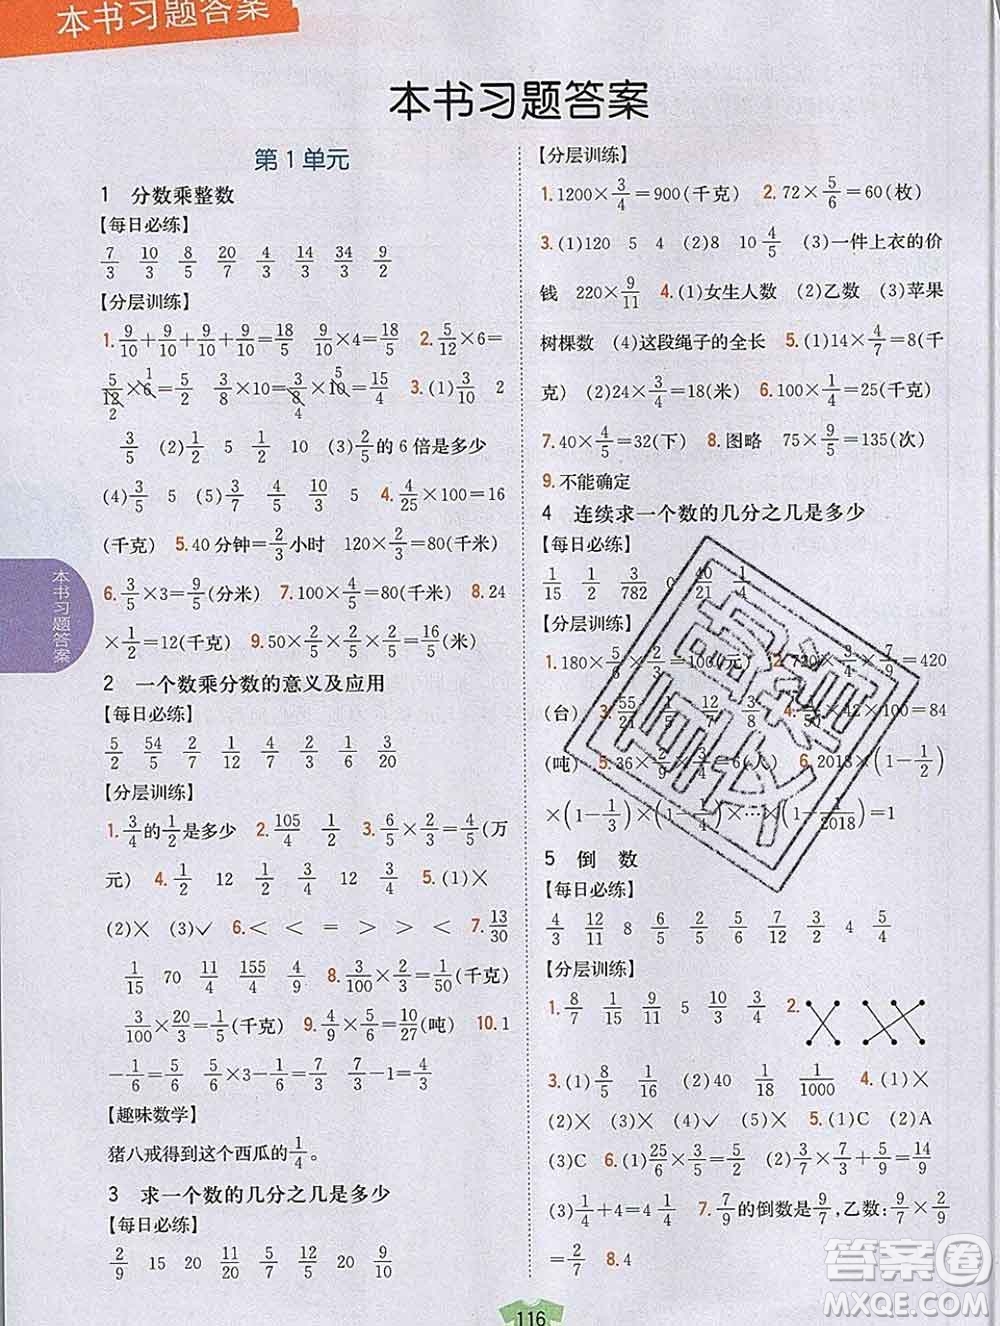 本书习题答案
本书习题答案
第1单元
1 分数乘整数
【每日必练】
7/3 10/3 8/5 20/7 4/3 14/3 34/3 9/2
【分层训练】
1. 9/10+9/10+9/10+9/10=18/5 9/10×4=18/5 2. 5/12×6=
5/12×6=5/2 3/8×10=3/8×10=15/4 3.(1)3/10 2
3/5 (2)1/2 5 1/2 10 (3)2/5的6倍是多少
(4)3/5 5 (5)3/7 10/3 3/5 4. 4/25×100=16
(千克) 5.40分钟=2/3小时 120×2/3=80(千米)
6. 3/5×3=9/5(分米) 7.100×4/5=80(千克) 8.24
×1/2=12(千克) 9.50×2/5×2/5×2/5=16/5(米)
2 一个数乘分数的意义及应用
【每日必练】
5/2 54/5 2/7 2/7 1/12 4/7 12/5 20/7
【分层训练】
1. 3/4的1/2是多少 2. 105/4 1/2 3. 6/5×2/3=4/5(万
元) 4. 1/2 12 1/2 12 3/4 1/2 5.(1)×
(2)× (3)✓ 6.< < = > > < 7. 13/30
1/15 70 11/4 155/4 4/9 8. 3/100×2/3=1/50(千克)
3/100×20/3=1/5(千克) 9. 4/9×5/6=10/27(吨) 10.1
-1/6=5/6 5/6×3-1/6=7/3 7/3-1=4/3
【趣味数学】
猪八戒得到这个西瓜的1/4。
3 求一个数的几分之几是多少
【每日必练】
2/9 15 20 11/20 5/7 9/11 10/3 15
【分层训练】
1.1200×3/4=900(千克) 2.72×5/6=60(枚)
3.(1)120 5 4 (2)8 10 4/5 (3)一件上衣的价
钱 220×9/11 4.(1)女生人数 (2)乙数 (3)苹果
树棵数 (4)这段绳子的全长 5.(1)14×4/7=8(千
克) (2)24×3/4=18(米) 6.100×1/4=25(千克)
7.40×4/5=32(下) 8.图略 75×9/5=135(次)
9.不能确定
4 连续求一个数的几分之几是多少
【每日必练】
1/15 1/2 3/782 0 40/21 1/4
【分层训练】
1.180×5/6×2/3=100(元) 2.720×3/4×7/9=420
(台) 3. 55/21 5/51 12/7 5/8 3/8 4. ×42×100=84
(吨) 5.36×2/9×3/4=6(人) 6.2018×(1-1/2)
×(1-1/3)×(1-1/4)×…×(1-1/2018)=1
5 倒 数
【每日必练】
4/3 12/11 8 6/5 5/4 5/6 12/7 8 4/5
【分层训练】
1. 8/7 1/15 9/11 5 10/3 3/4 2.
3.(1)8/5 1/16 4/3 (2)40 1/18 1/1000 4.(1)×
(2)× (3)× (4)✓ (5)× 5.(1)C (2)A
(3)C 6.(1)25/6×3/5=5/2 (2)3/7×7/3=2/7×7/2
(3)1/4+4=4 1/4 7. 7/9的倒数是9/7,乙数:9/7×2/9
=2/7 8.4
本书习题答案
116
答案圈
MXQE.COM